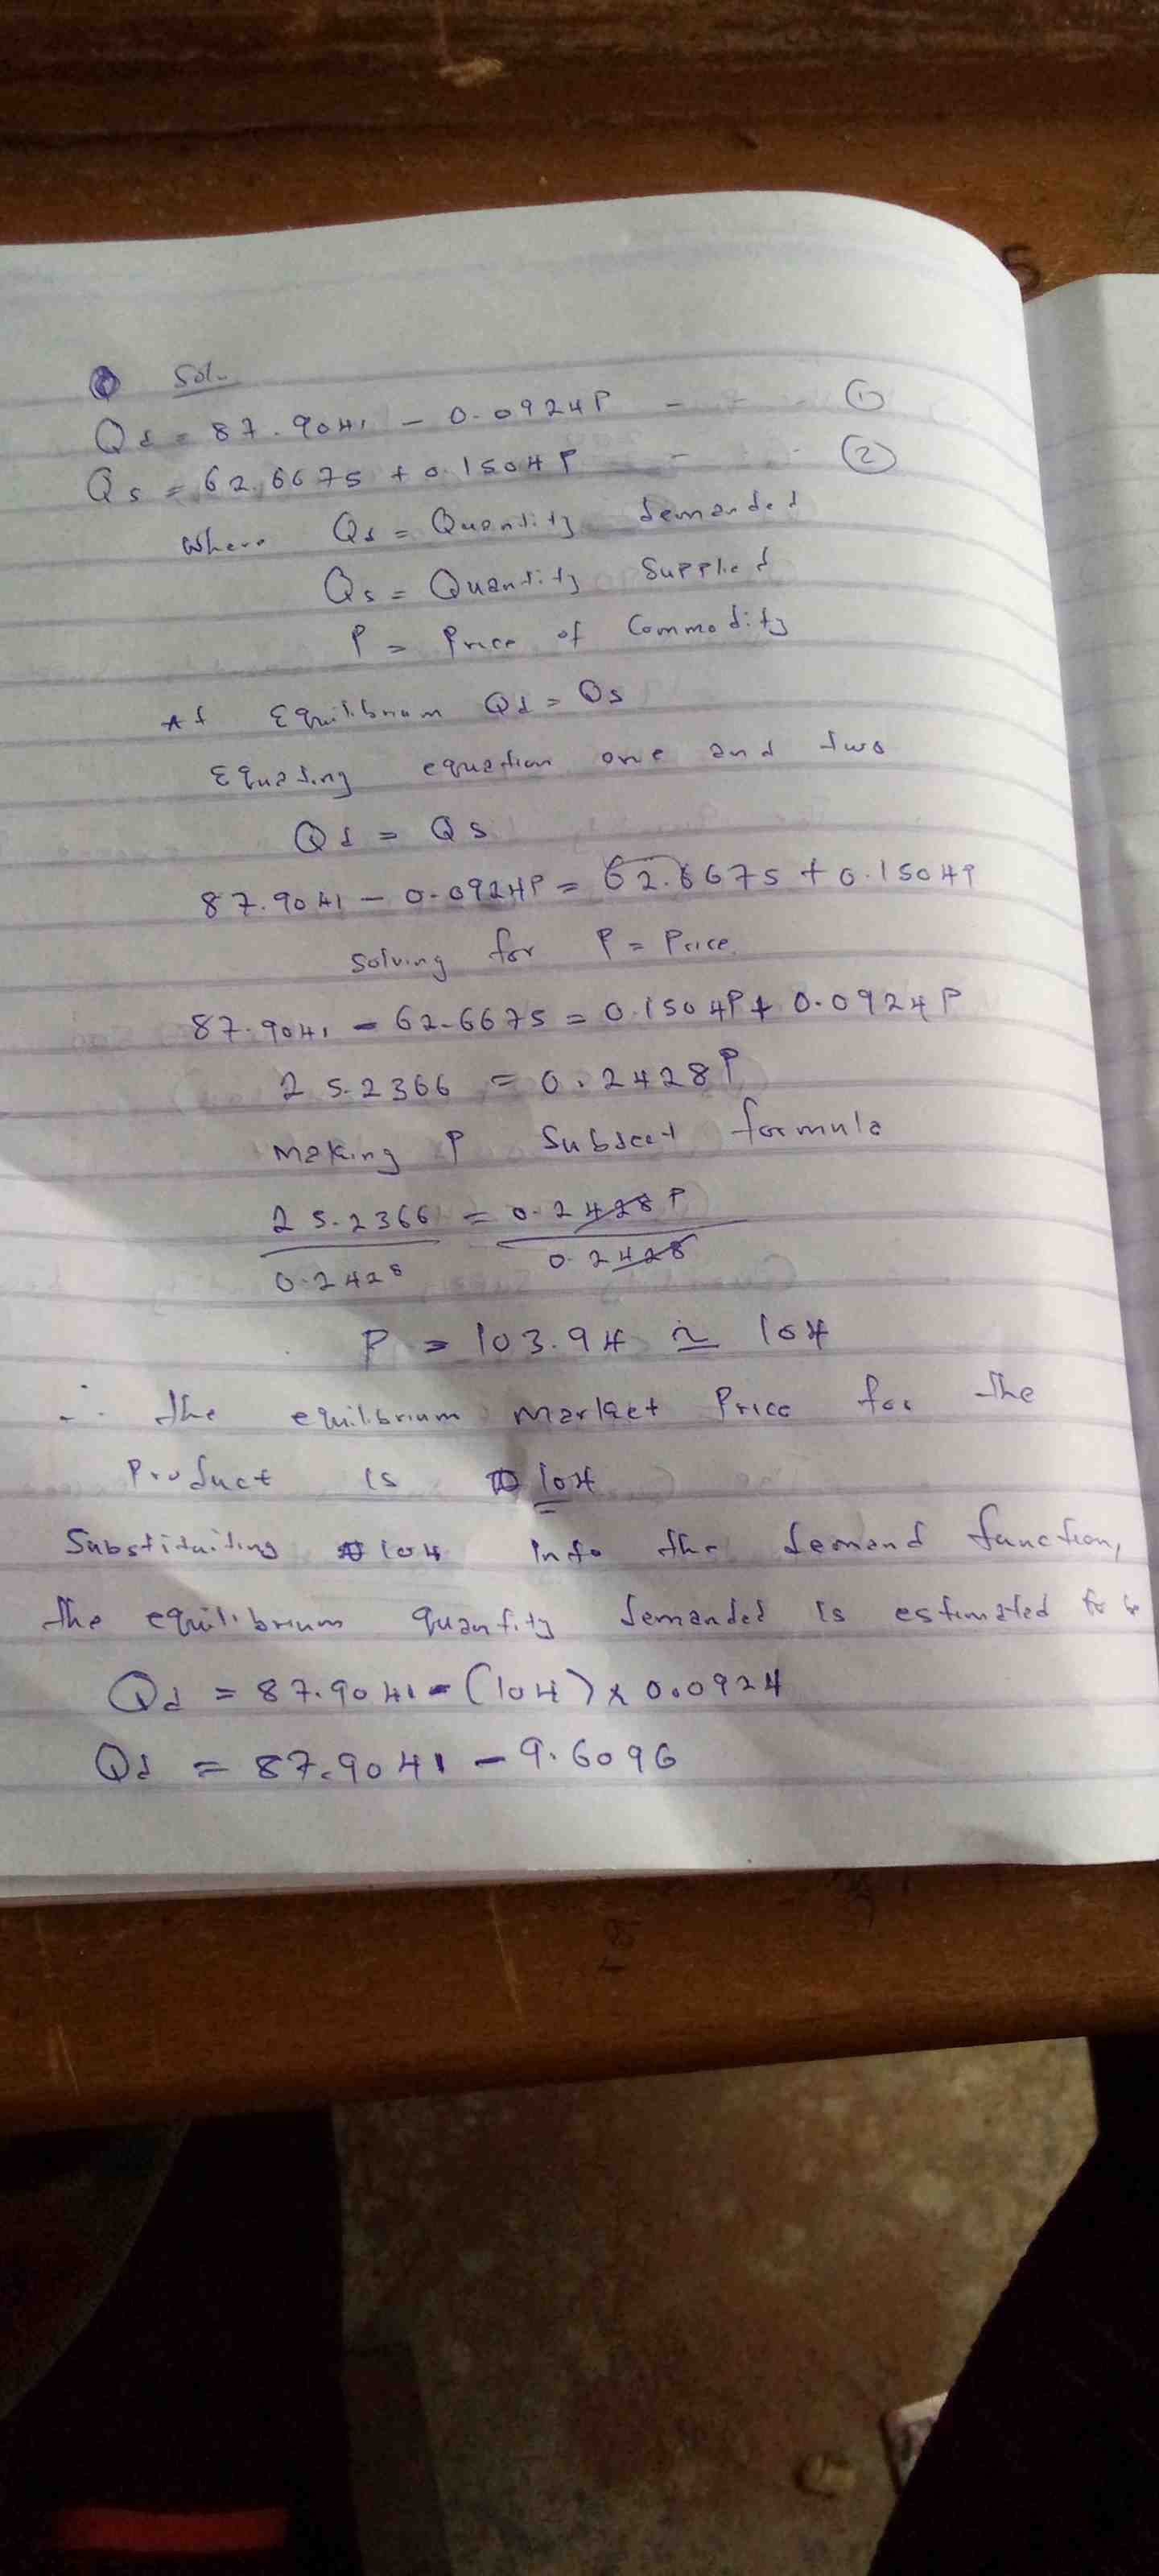 Sol.
Qd = 87.9041 - 0.0924P - - - (1)
Qs = 62.6675 + 0.1504P - - - (2)
Where Qd = Quantity demanded
Qs = Quantity Supplied
P = Price of Commodity
At Equilibrium Qd = Qs
Equating equation one and two
Qd = Qs
87.9041 - 0.0924P = 62.6675 + 0.1504P
Solving for P = Price
87.9041 - 62.6675 = 0.1504P + 0.0924P
25.2366 = 0.2428P
Making P Subject formula
25.2366 = 0.2428P
0.2428 0.2428
P = 103.94 ≃ 104
∴ the equilibrium Market Price for the
Product is 104
Substituiting 104 into the demand function,
the equilibrium quantity demanded is estimated to be
Qd = 87.9041 - (104) x 0.0924
Qd = 87.9041 - 9.6096